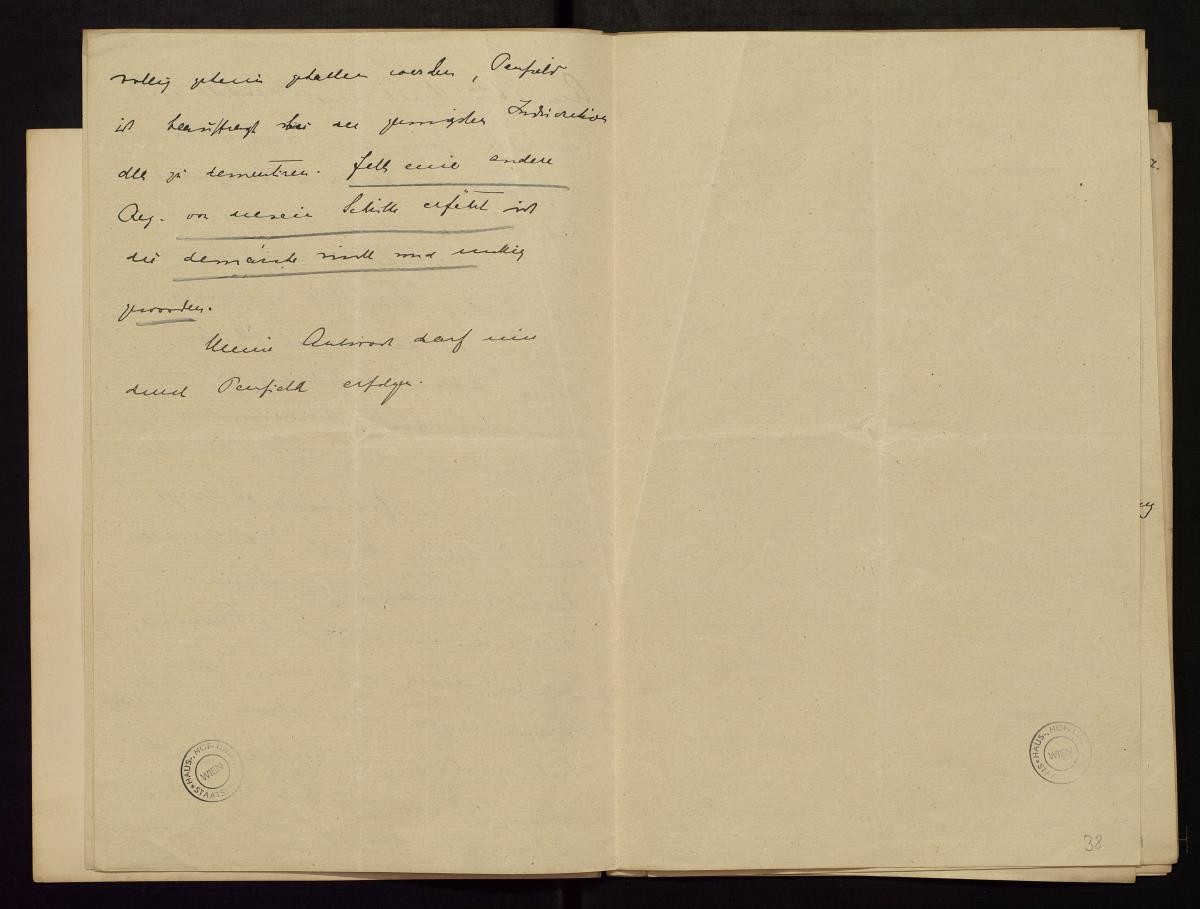 völlig geheim gehalten werden, Penfield
ist beauftragt bei der geringsten Indiscretion
alles zu dementiren. Falls eine andere
Reg. von diesem Schritte erfährt ist
die demarche null und nichtig
geworden.
Meine Antwort darf nur
durch Penfield erfolgen.
HAUS-, HOF- UND
STAATS
WIEN
HAUS-, HOF-
STAATS
WIEN
38